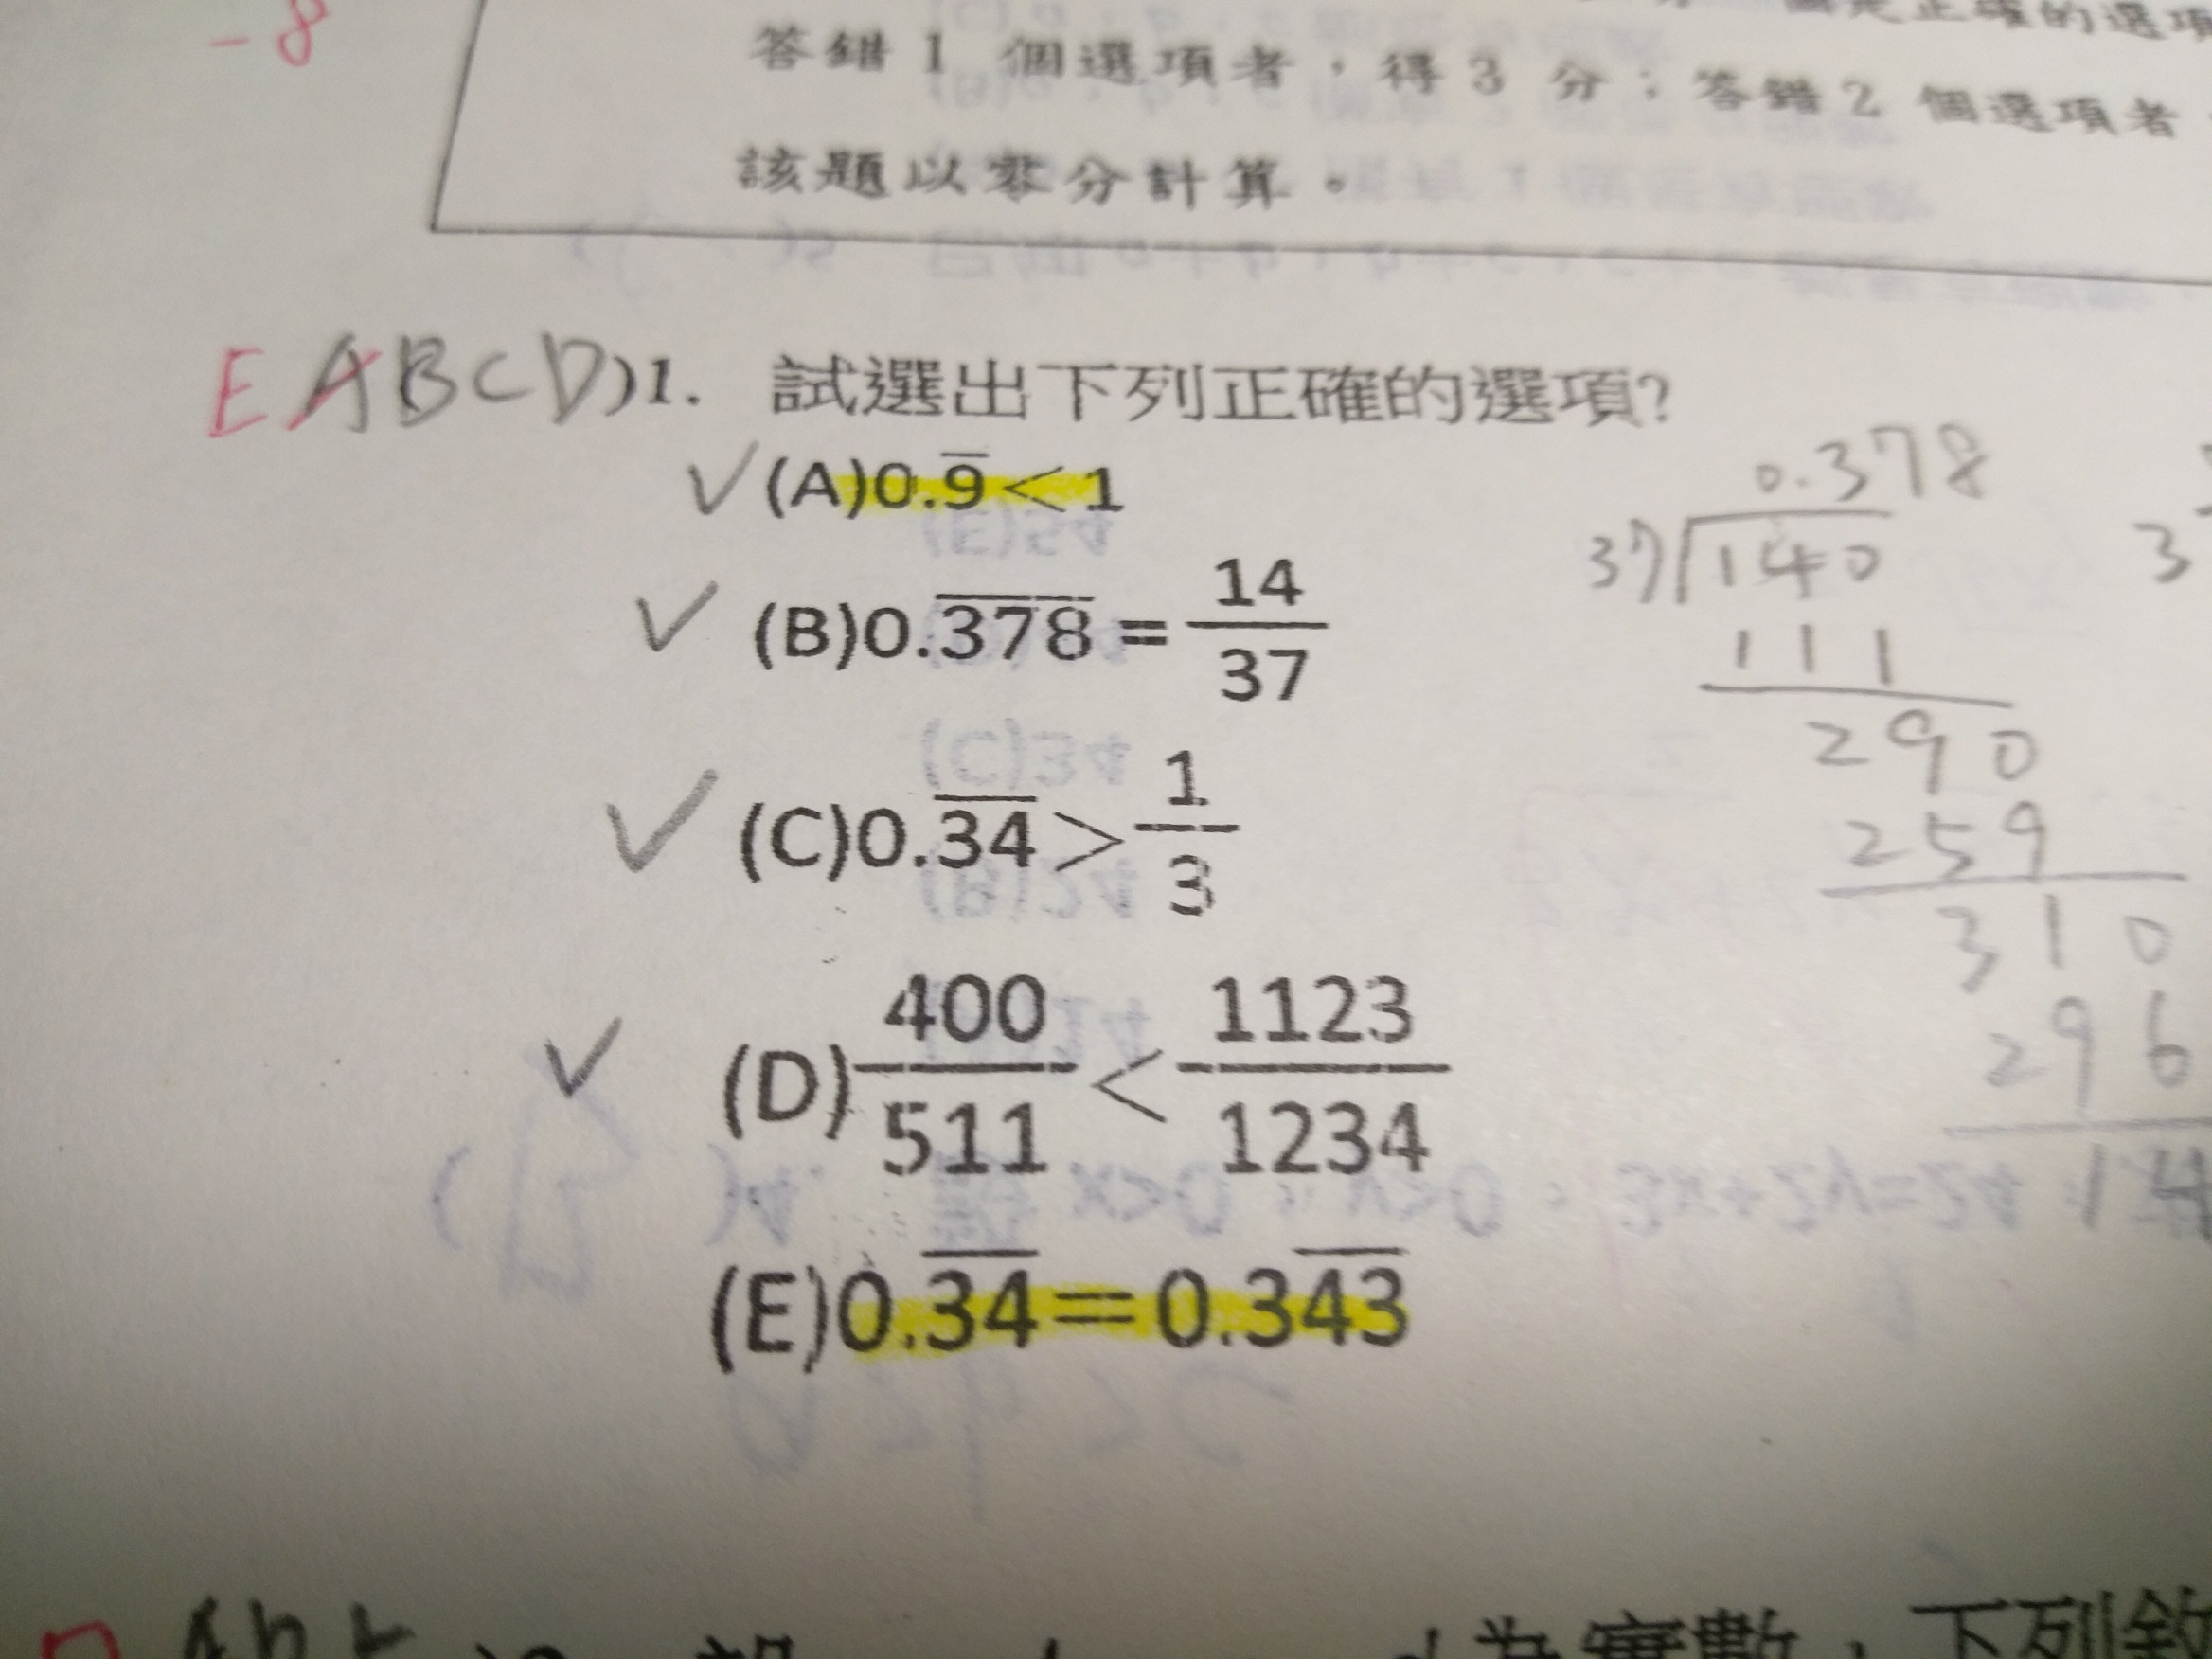 -8
正確的選項
答錯 1 個選項者，得 3 分；答錯 2 個選項者
該題以零分計算。
E A B C D )1. 試選出下列正確的選項?
✓ (A)0.9̅<1
✓ (B)0.3̅7̅8̅=14/37
✓ (C)0.3̅4̅>1/3
✓ (D)400/511<1123/1234
(E)0.3̅4̅=0.34̅3̅
0.378
37 140
111
290
259
310
296
14
3
為實數，下列敘